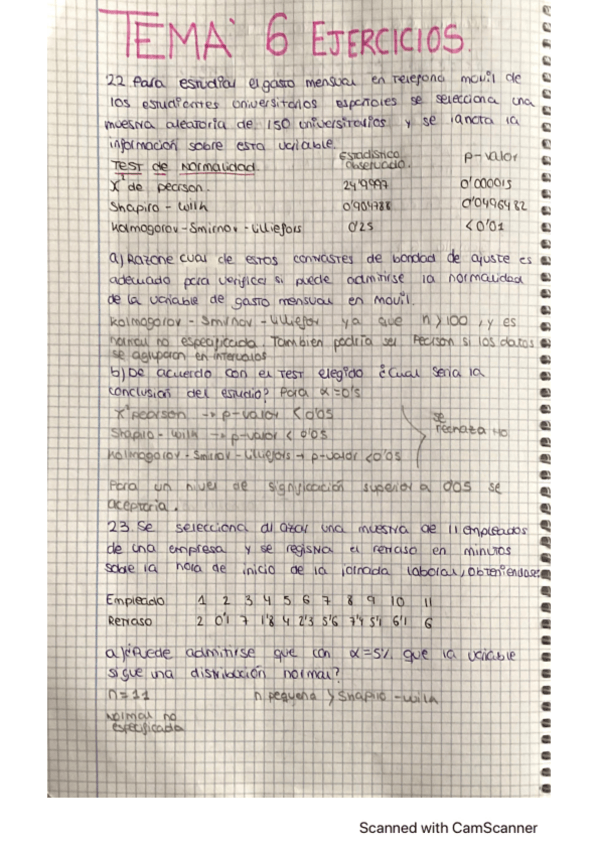 TEMA 6 EJERCICIOS.
22. Para estudiar el gasto mensual en telefono movil de
los estudiantes universitarios españoles se selecciona una
muestra aleatoria de 150 universitarios y se anota la
información sobre esta variable.
Test de Normalidad. Estadístico observado. p-valor
X² de pearson. 24'9997 0'000015
Shapiro - Wilk 0'904788 0'0496482
Kolmogorov-Smirnov-Lilliefors 0'25 <0'01
a) Razone cual de estos contrastes de bondad de ajuste es
adecuado para verificar si puede admitirse la normalidad
de la variable de gasto mensual en movil.
Kolmogorov - Smirnov - Lilliefor ya que n>100, y es
normal no especificada. Tambien podria ser Pearson si los datos
se agruparan en intervalos
b) De acuerdo con el test elegido ¿cual seria la
conclusion del estudio? Para α=0'5
X² pearson → p-valor <0'05
Shapiro - Wilk → p-valor < 0'05
Kolmogorov - Smirnov - Lilliefors → p-valor <0'05
se
rechaza H0
Para un nivel de significación superior a 0'05 se
aceptaria.
23. Se selecciona al azar una muestra de 11 empleados
de una empresa y se registra el retraso en minutos
sobre la hora de inicio de la jornada laboral, obteniendose:
Empleado 1 2 3 4 5 6 7 8 9 10 11
Retraso 2 0'1 7 1'8 4 2'3 5'6 7'4 5'1 6'1 6
a) ¿Puede admitirse que con α=5% que la variable
sigue una distribución normal?
n=11 n pequeña } Shapiro - Wilk
Normal no
especificada
Scanned with CamScanner